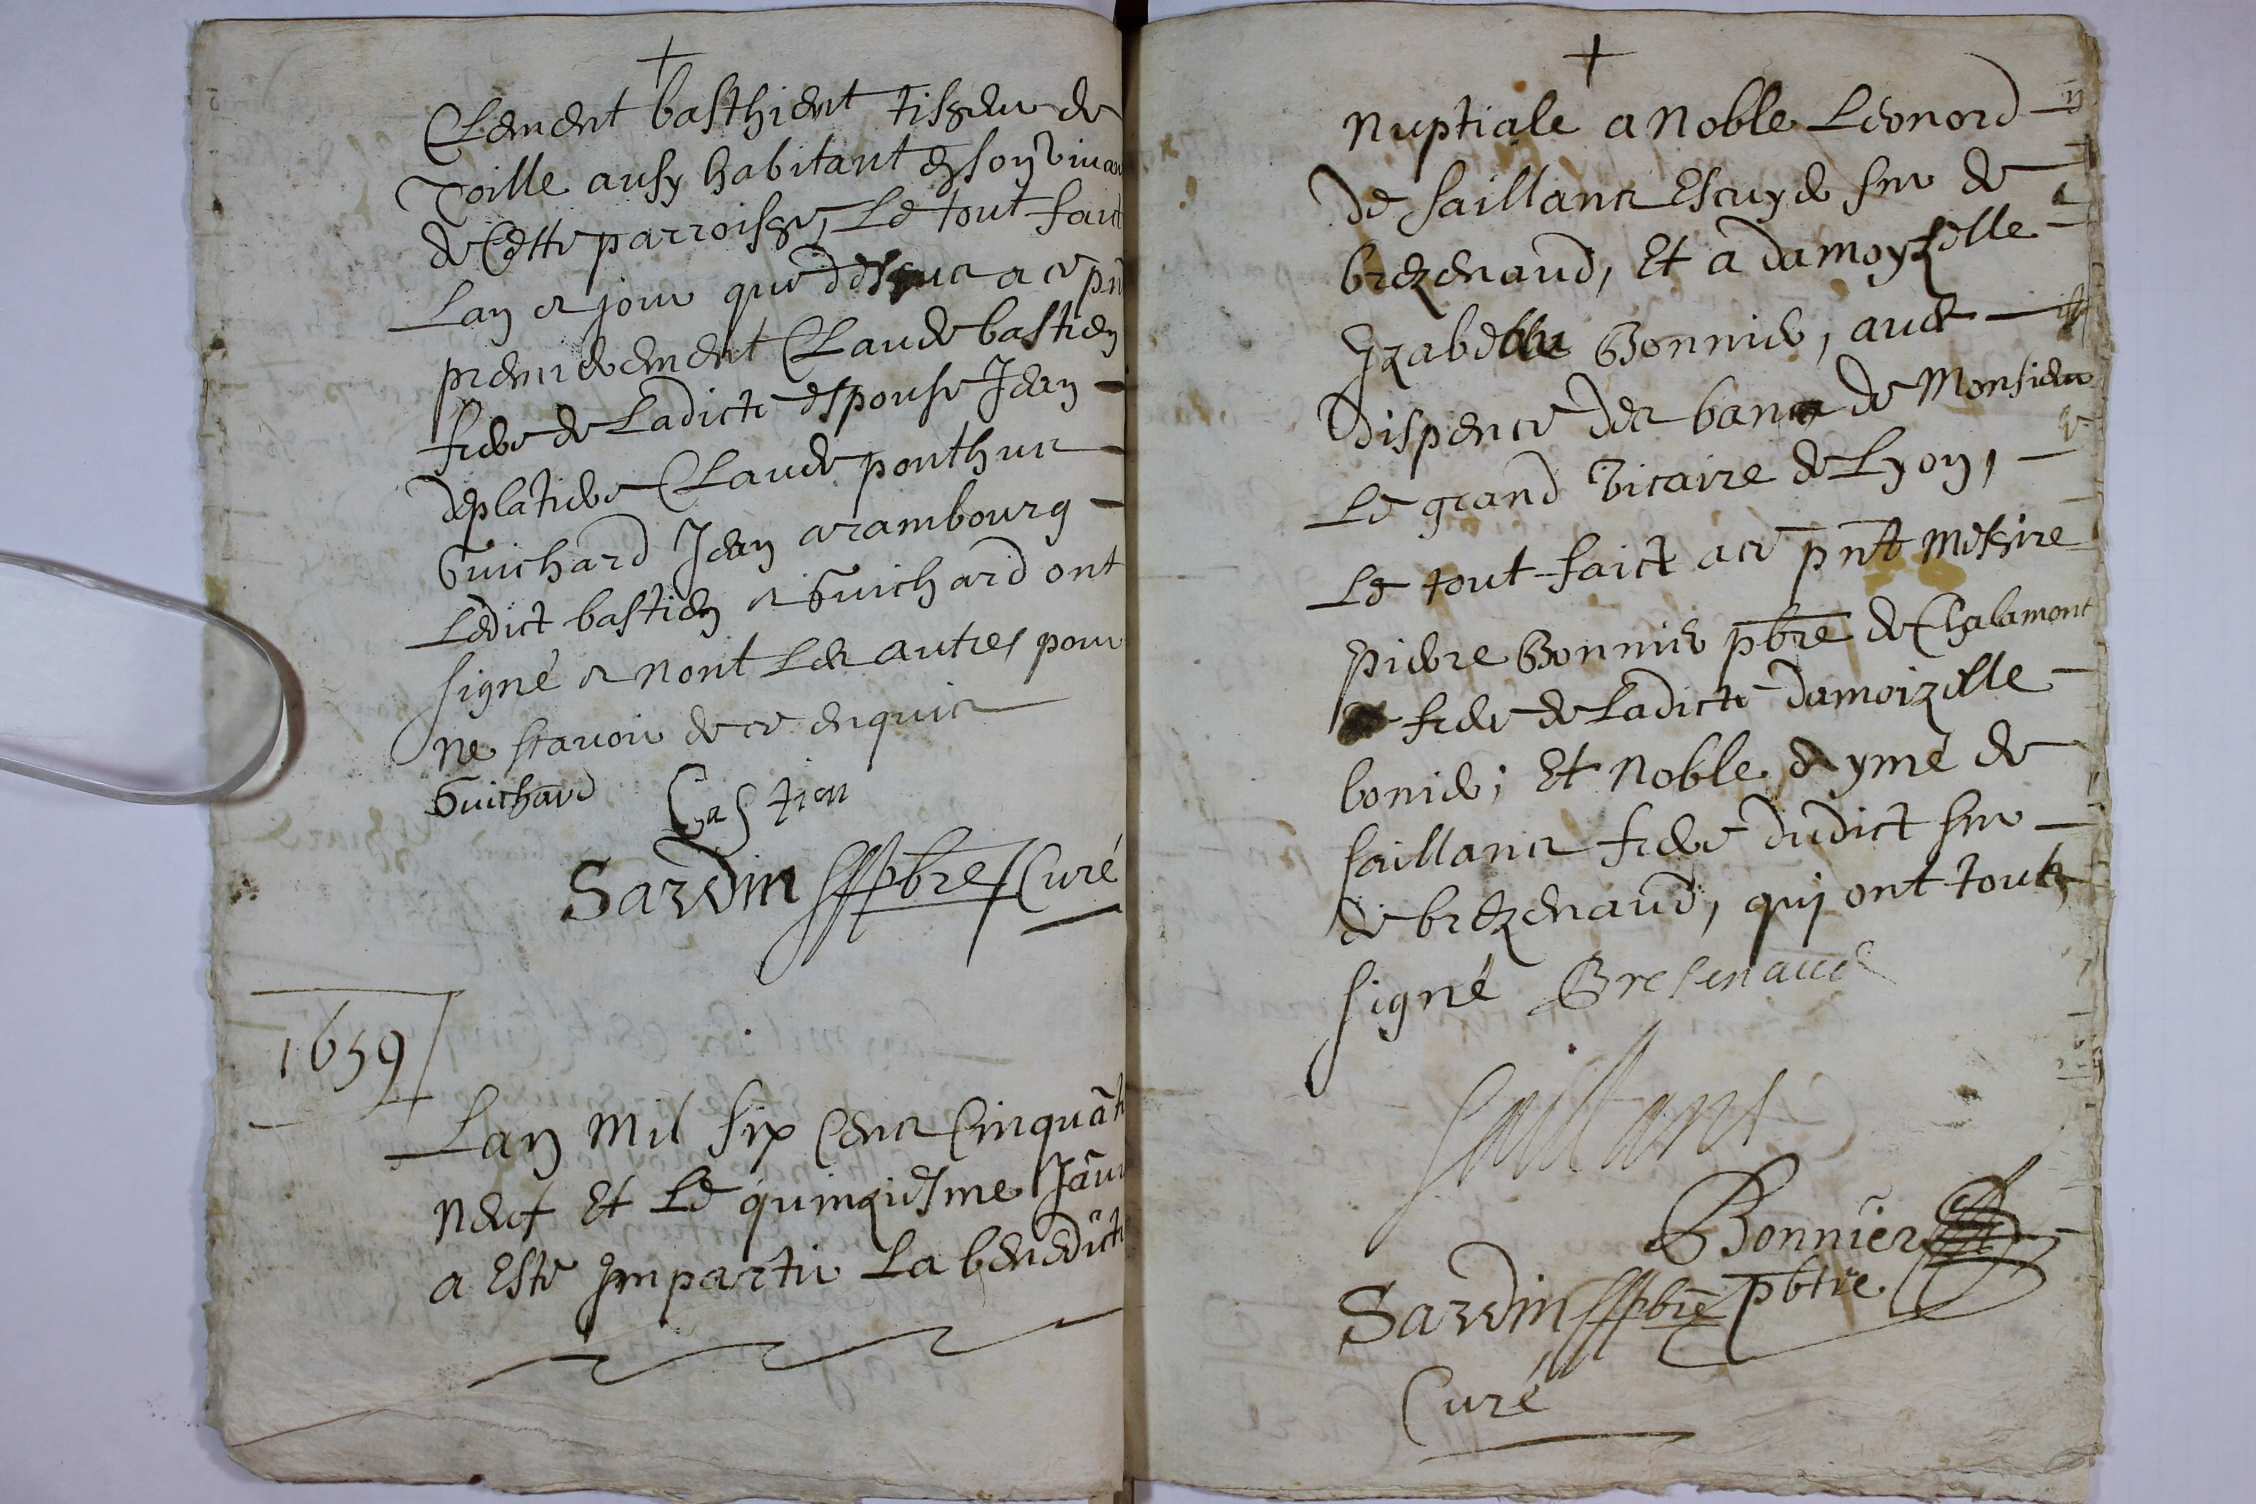 Clement basthient tisseur de
Toille ausy habitant en son viva
de Cette parroisse, Le tout faict
Lan et jour que dessus a ce pn
premierement Claude bastien
frere de Ladicte espouse Jean
deplatiere Claude ponthus
Guichard Jean arambourg
Ledict bastien et Guichard ont
signé et nont Les autres pour
ne scavoir de ce enquis
Guichard Bastien
Sardin pbre Curé
1659
Lan mil six Cens Cinquãt
neuf Et Le quinziesme Jãuv
a Este Impartir La benedict
nuptiale a noble Leonord
de saillans Escuyer sr de
brezenaud, Et a damoyselle
Izabelle Bonnier, avec
dispence des bans de Monsieur
Le grand Vicaire de Lyon,
Le tout faict a ce pnt Messire
pierre Bonnier pbre de Chalamont
frere de Ladicte damoizelle
bonier; Et noble aymé de
saillans frere dudict sr
de brezenaud, qui ont touts
signé Bresenaud
Saillans
Bonnier
Sardin pbre pbtre
Curé